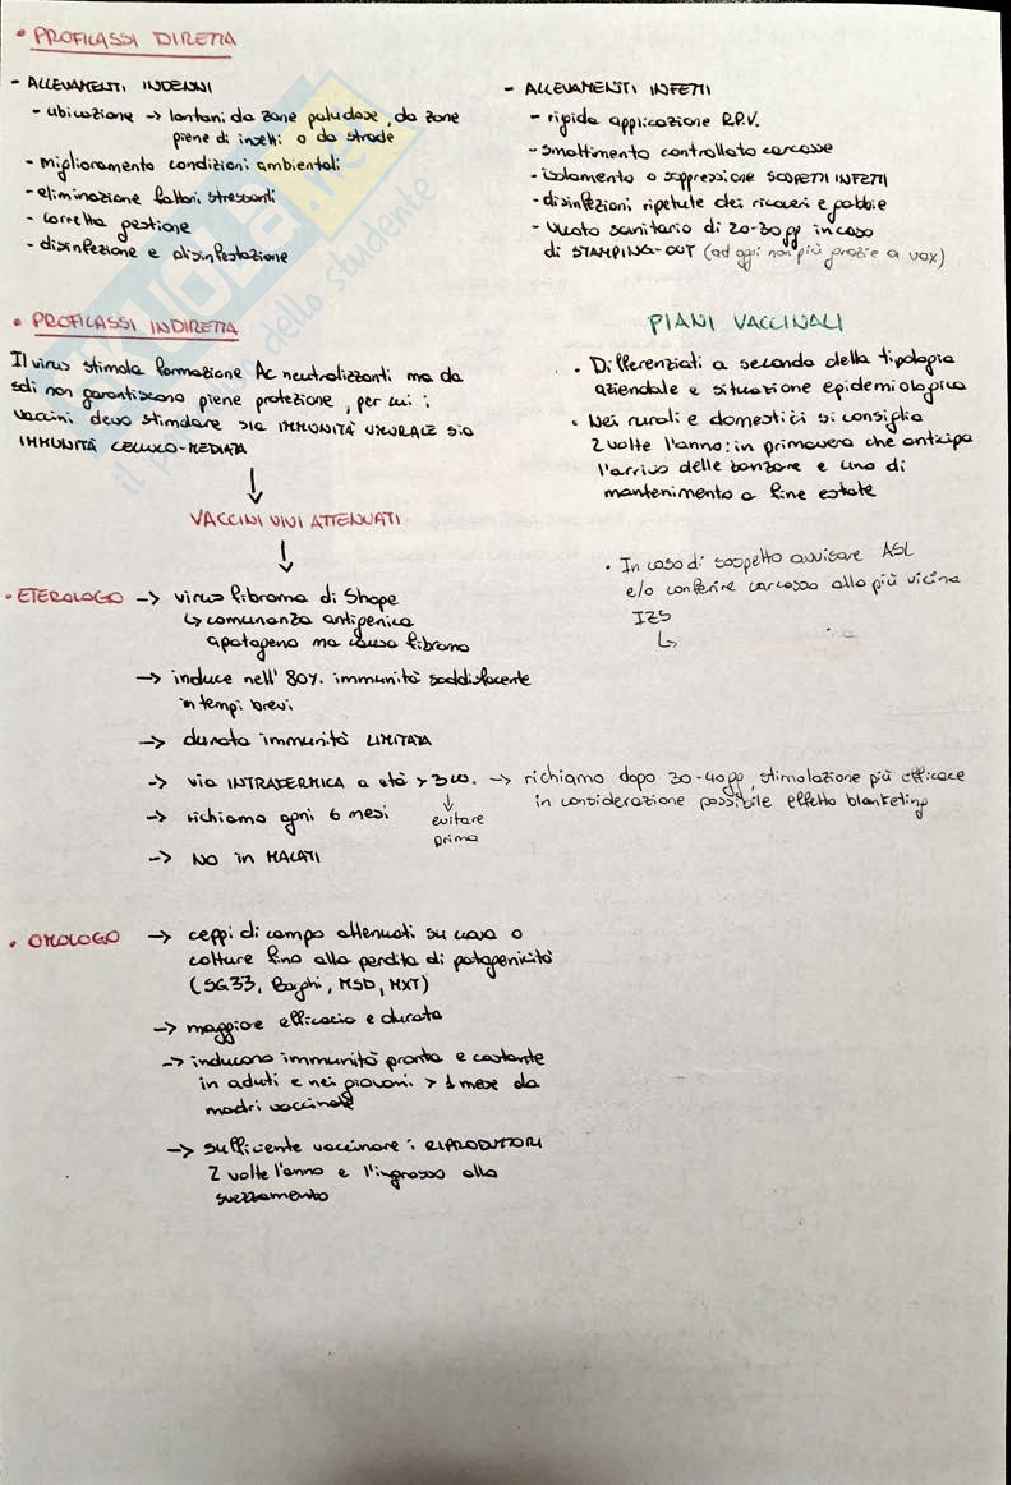 • PROFILASSI DIRETTA
- ALLEVAMENTI INDENNI
- ubicazione → lontani da zone paludose, da zone
piene di insetti o da strade
- miglioramento condizioni ambientali
- eliminazione fattori stressanti
- corretta gestione
- disinfezione e disinfestazione
- ALLEVAMENTI INFETTI
- rigida applicazione R.P.V.
- smaltimento controllato carcasse
- isolamento o soppressione SOGGETTI INFETTI
- disinfezioni ripetute dei ricoveri e gabbie
- vuoto sanitario di 20-30 gg in caso
di STAMPING-OUT (ad oggi non più grazie a vax)
• PROFILASSI INDIRETTA
Il virus stimola formazione Ac neutralizzanti ma da
soli non garantiscono piena protezione, per cui i
vaccini devo stimolare sia IMMUNITÀ UMORALE sia
IMMUNITÀ CELLULO-MEDIATA
↓
VACCINI VIVI ATTENUATI
↓
PIANI VACCINALI
• Differenziati a seconda della tipologia
aziendale e situazione epidemiologica
• Nei rurali e domestici si consiglia
2 volte l'anno: in primavera che anticipa
l'arrivo delle zanzare e uno di
mantenimento a fine estate
• In caso di sospetto avvisare ASL
e/o conferire carcassa alla più vicina
IZS
↳
• ETEROLOGO → virus fibroma di Shope
↳ comunanza antigenica
apatogeno ma causa fibroma
→ induce nell' 80% immunità soddisfacente
in tempi brevi
→ durata immunità LIMITATA
→ via INTRADERMICA a età > 3 w. → richiamo dopo 30-40 gg, stimolazione più efficace
in considerazione possibile effetto blanketing
↓
evitare
prima
→ richiamo ogni 6 mesi
→ NO in MALATI
• OMOLOGO → ceppi di campo attenuati su uova o
colture fino alla perdita di patogenicità
(SG33, Borghi, MSD, MXT)
→ maggiore efficacia e durata
→ inducono immunità pronta e costante
in adulti e nei giovani > 1 mese da
madri vaccinate
→ sufficiente vaccinare i RIPRODUTTORI
2 volte l'anno e l'ingrasso allo
svezzamento
il
dello studente